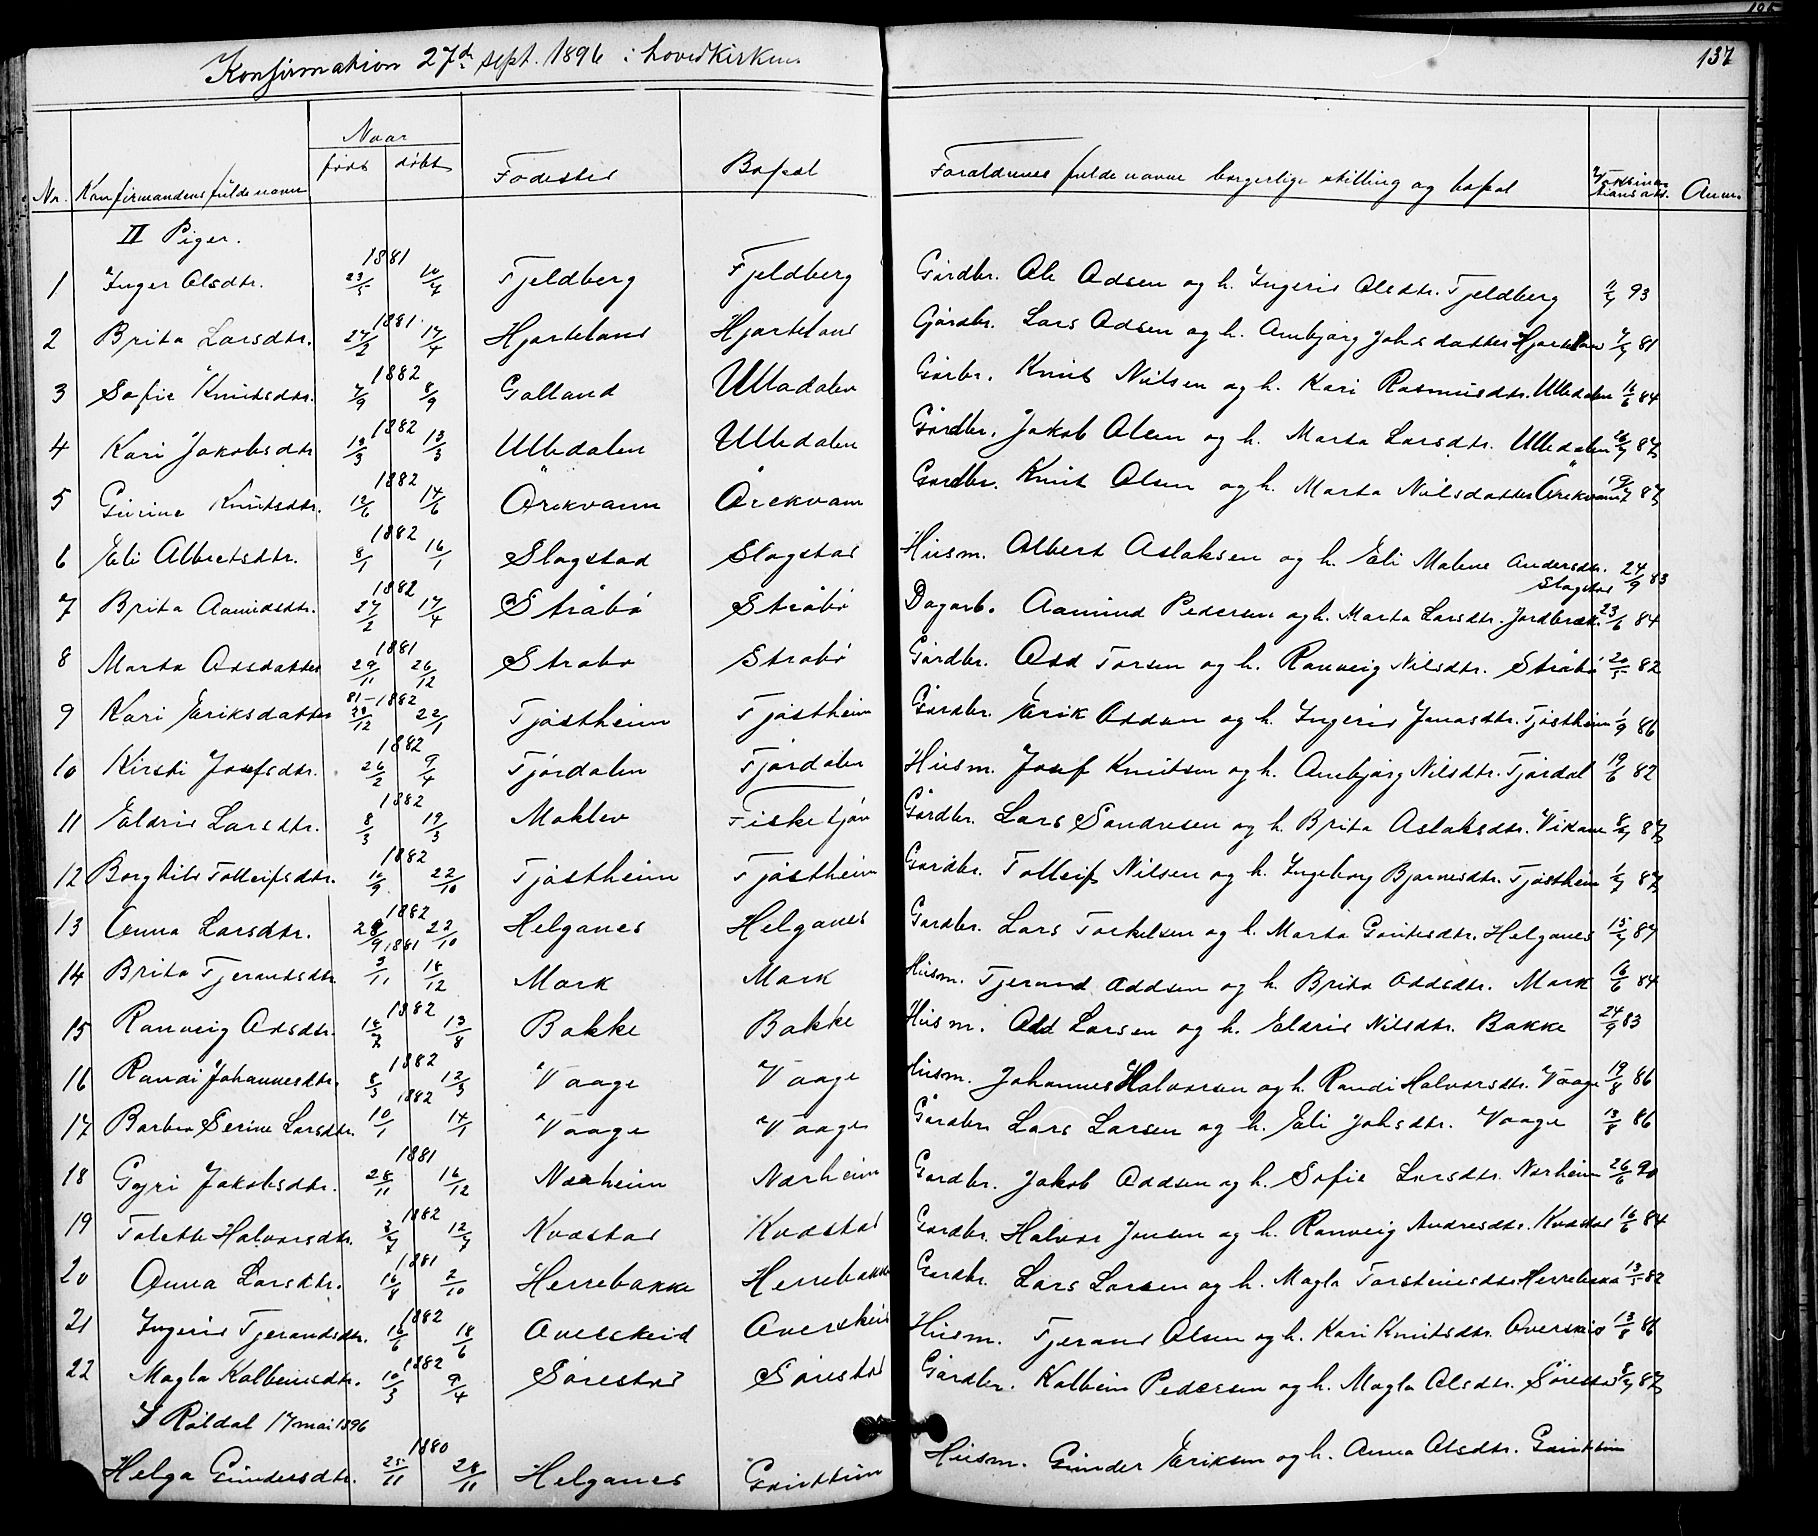 137
Konfirmation 27de sept. 1896 i hovedkirken
No. Konfirmandens fulde navn Naar født døbt Fødested Bopæl Forældrenes fulde navne borgerlige stilling og bopæl Anm.
II Piger.
1 Inger Olsdtr. 1881 23/5 10/7 Fjeldberg Fjeldberg Gårdbr. Ole Odsen og h. Ingerid Olsdtr. Fjeldberg 11/7 93
2 Brita Larsdtr. 1881 27/2 17/4 Hjorteland Hjorteland Gårdbr. Lars Odsen og h. Anbjørg Johsdatter Hjorteland 7/7 81
3 Sofie Knutsdtr. 1882 7/9 8/9 Galland Ulledalen Gårbr. Knut Nilsen og h. Kari Rasmusdtr. Ulledalen 16/6 84
4 Kari Jakobsdtr 1882 13/3 13/3 Ulledalen Ulledalen Gårdbr. Jakob Olsen og h. Marta Larsdtr. Ulledalen 26/7 87
5 Gurine Knutsdtr. 1882 12/6 14/6 Ørekvam Ørekvam Gårdbr. Knut Olsen og h. Marta Nilsdatter Ørekvam 19/7 87
6 Eli Albretsdtr. 1882 8/1 16/1 Slagstad Slagstad Husm. Albert Aslaksen og h. Eli Malene Andersdtr. Slagstad 24/9 83
7 Brita Aamundsdtr. 1882 27/2 17/4 Stråbø Stråbø Dagarb. Aamund Pedersen og h. Marta Larsdtr. Jordbræk. 23/6 84
8 Marta Odsdatter 1881 29/11 26/12 Strabø Strabø Gårdbr. Odd Torsen og h. Ranveig Nilsdtr. Stråbø 20/5 82
9 Kari Eriksdatter 81-1882 28/12 22/1 Tjøstheim Tjøstheim Gårdbr. Erik Oddsen og h. Ingerid Jonasdtr. Tjøstheim 1/9 86
10 Kirsti Josefsdtr. 1882 26/2 9/4 Tjørdalen Tjørdalen Husm. Josef Knutsen og h. Anbjørg Nilsdtr. Tjørdal 19/6 82
11 Eldrid Larsdtr. 1882 8/3 19/3 Moklev Fisketjøn Gårdbr. Lars Sondresen og h. Brita Aslaksdtr. Vikane 8/7 87
12 Borghild Tolleifsdtr. 1882 10/9 22/10 Tjøstheim Tjøstheim Gårdbr. Tolleif Nilsen og h. Ingeborg Bjørnesdtr. Tjøstheim 1/7 87
13 Anna Larsdtr. 1882 28/9 22/10 Helganes Helganes Gardbr. Lars Torkelsen og h. Marta Gautesdtr. Helganes 15/7 87
14 Brita Tjerandsdtr 1881 3/11 18/12 Mork Mork Husm. Tjerand Oddsen og h. Brita Oddsdtr. Mork 16/6 84
15 Ranveig Odsdtr. 1882 18/7 13/8 Bakke Bakke Husm. Odd Larsen og h. Eldrid Nilsdtr. Bakke 24/9 83
16 Randi Johannesdtr. 1882 8/3 12/3 Vaage Vaage Husm. Johannes Halvorsen og h. Randi Halvorsdtr. Vaage 19/8 86
17 Barbra Serine Larsdtr. 1882 10/1 14/1 Vaage Vaage Gårdbr. Lars Larsen og h. Eli Johsdtr. Vaage 13/8 86
18 Gyri Jakobsdtr. 1881 28/11 16/12 Nærheim Nærheim Gardbr. Jakob Oddsen og h. Sofie Larsdtr. Nærheim 26/6 90
19 Tolette Halvorsdtr. 1882 3/7 12/7 Kvæstad Kvæstad Gardbr. Halvor Jonsen og h. Ranveig Andresdtr. Kvæstad 16/6 84
20 Anna Larsdtr. 1881 16/8 2/10 Herrebakke Herrebakke Gardbr. Lars Larsen og h. Magla Torsteinsdtr. Herrebakke 13/5 82
21 Ingerid Tjerandsdtr. 1882 16/6 18/6 Overskeid Overskeid Husm. Tjerand Olsen og h. Kari Knutsdtr. Overskeid 13/8 86
22 Magla Kolbeinsdtr. 1882 10/3 9/4 Sørestad Sørestad Gårdbr. Kolbein Pedersen og h. Magla Olsdtr. Sørestad 8/7 87
I Røldal 17 mai 1896
Helga Gundersdtr. 1880 25/11 28/11 Helganes Husm. Gunder Eriksen og h. Anna Olsdtr.